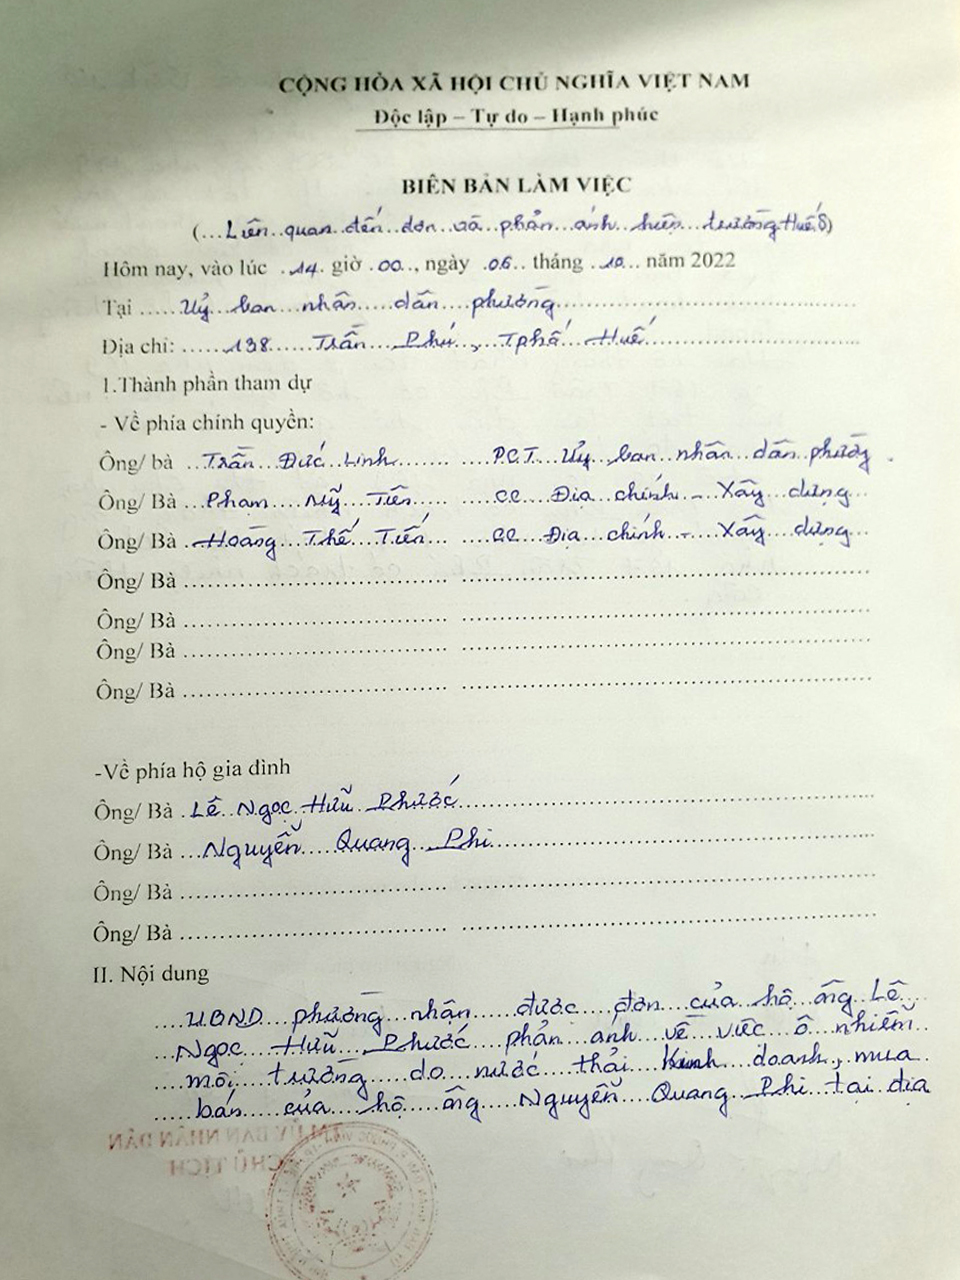 CỘNG HÒA XÃ HỘI CHỦ NGHĨA VIỆT NAM
Độc lập – Tự do – Hạnh phúc
BIÊN BẢN LÀM VIỆC
(...Liên quan đến đơn và phản ánh hiện trường Huế S)
Hôm nay, vào lúc .14. giờ .00.., ngày .06.. tháng .10.. năm 2022
Tại ......Uỷ ban nhân dân phường
Địa chỉ: ......138 Trần Phú, Tphố Huế
1.Thành phần tham dự
- Về phía chính quyền:
Ông/ bà ..Trần Đức Linh P.C.T. Uỷ ban nhân dân phường.
Ông/ Bà ..Phạm Mỹ Tiên CC Địa chính - Xây dựng
Ông/ Bà .Hoàng Thế Tiến CC Địa chính - Xây dựng
Ông/ Bà
Ông/ Bà
Ông/ Bà
Ông/ Bà
-Về phía hộ gia đình
Ông/ Bà .Lê Ngọc Hữu Phước
Ông/ Bà ...Nguyễn Quang Phi
Ông/ Bà
Ông/ Bà
II. Nội dung
UBND phường nhận được đơn của hộ ông Lê
Ngọc Hữu Phước phản ánh về việc ô nhiễm
môi trường do nước thải kinh doanh, mua
bán của hộ ông Nguyễn Quang Phi tại địa
TM ỦY BAN NHÂN DÂN
CHỦ TỊCH